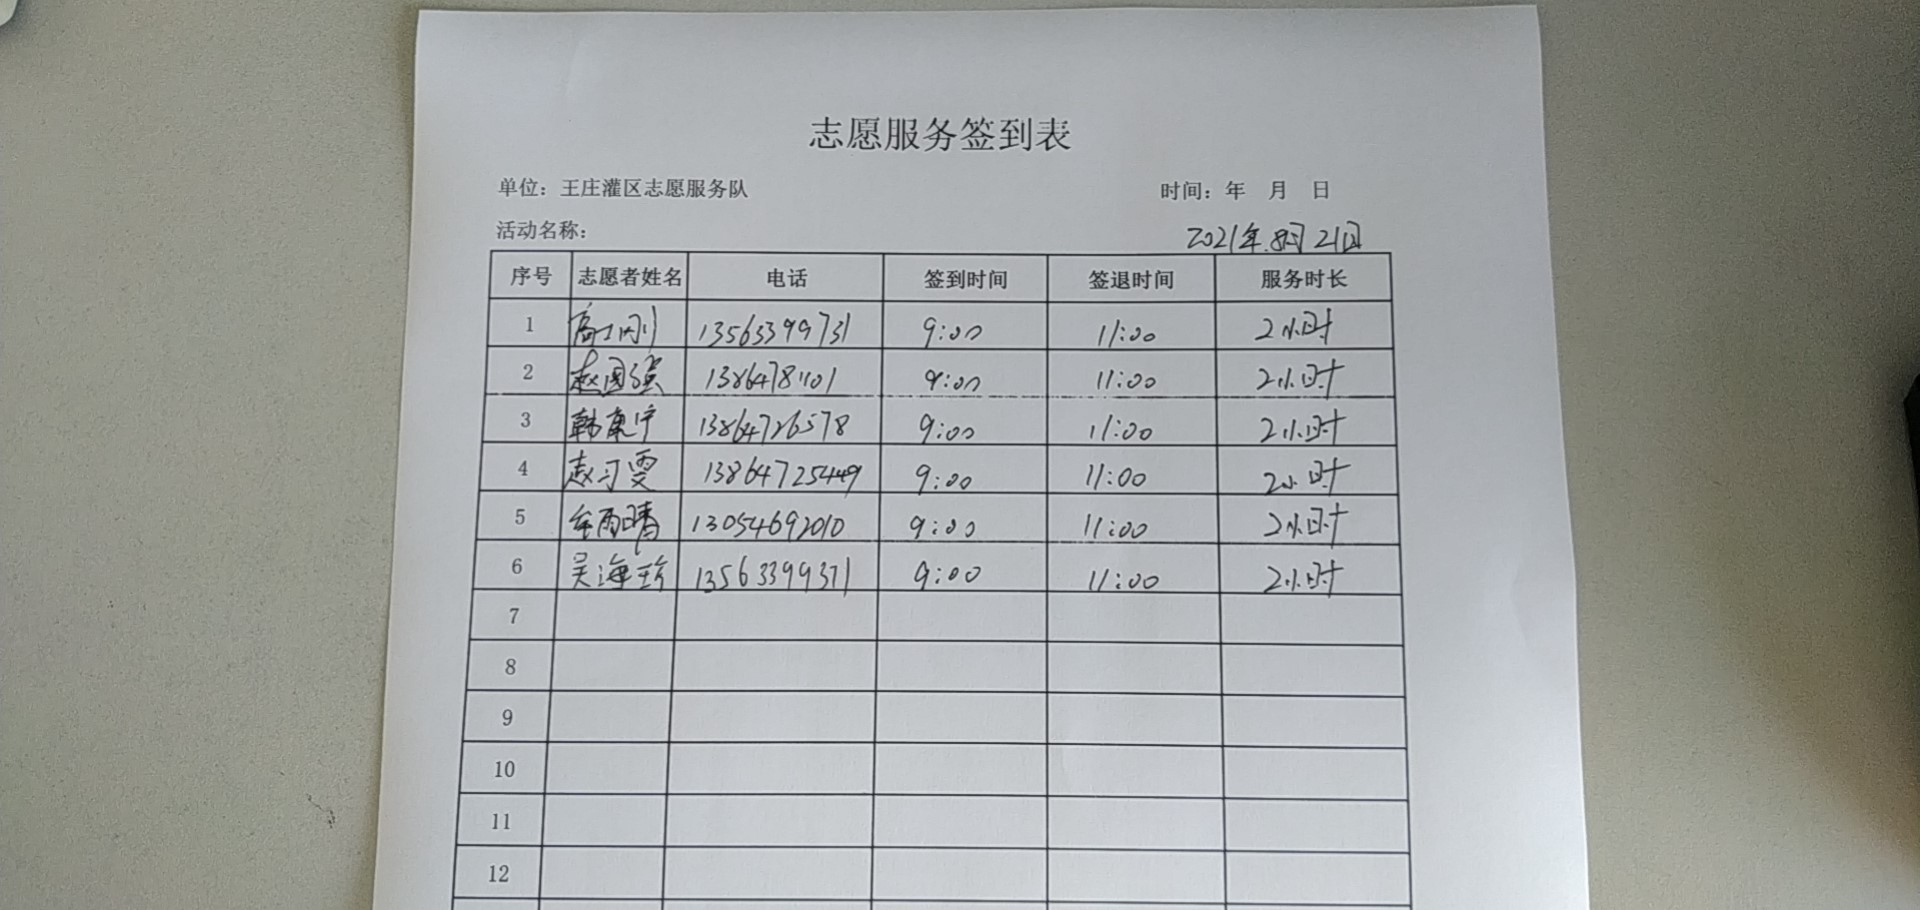 志愿服务签到表
单位：王庄灌区志愿服务队 时间：年 月 日
活动名称：
2021年.8月21日
序号 志愿者姓名 电话 签到时间 签退时间 服务时长
1 高士刚 13563399731 9:00 11:00 2小时
2 赵国强 9:00 11:00 2小时
3 韩康宁 13864726578 9:00 11:00 2小时
4 赵习雯 13864725449 9:00 11:00 2小时
5 雨晴 13054692010 9:00 11:00 2小时
6 吴海珍 13563399371 9:00 11:00 2小时
7
8
9
10
11
12